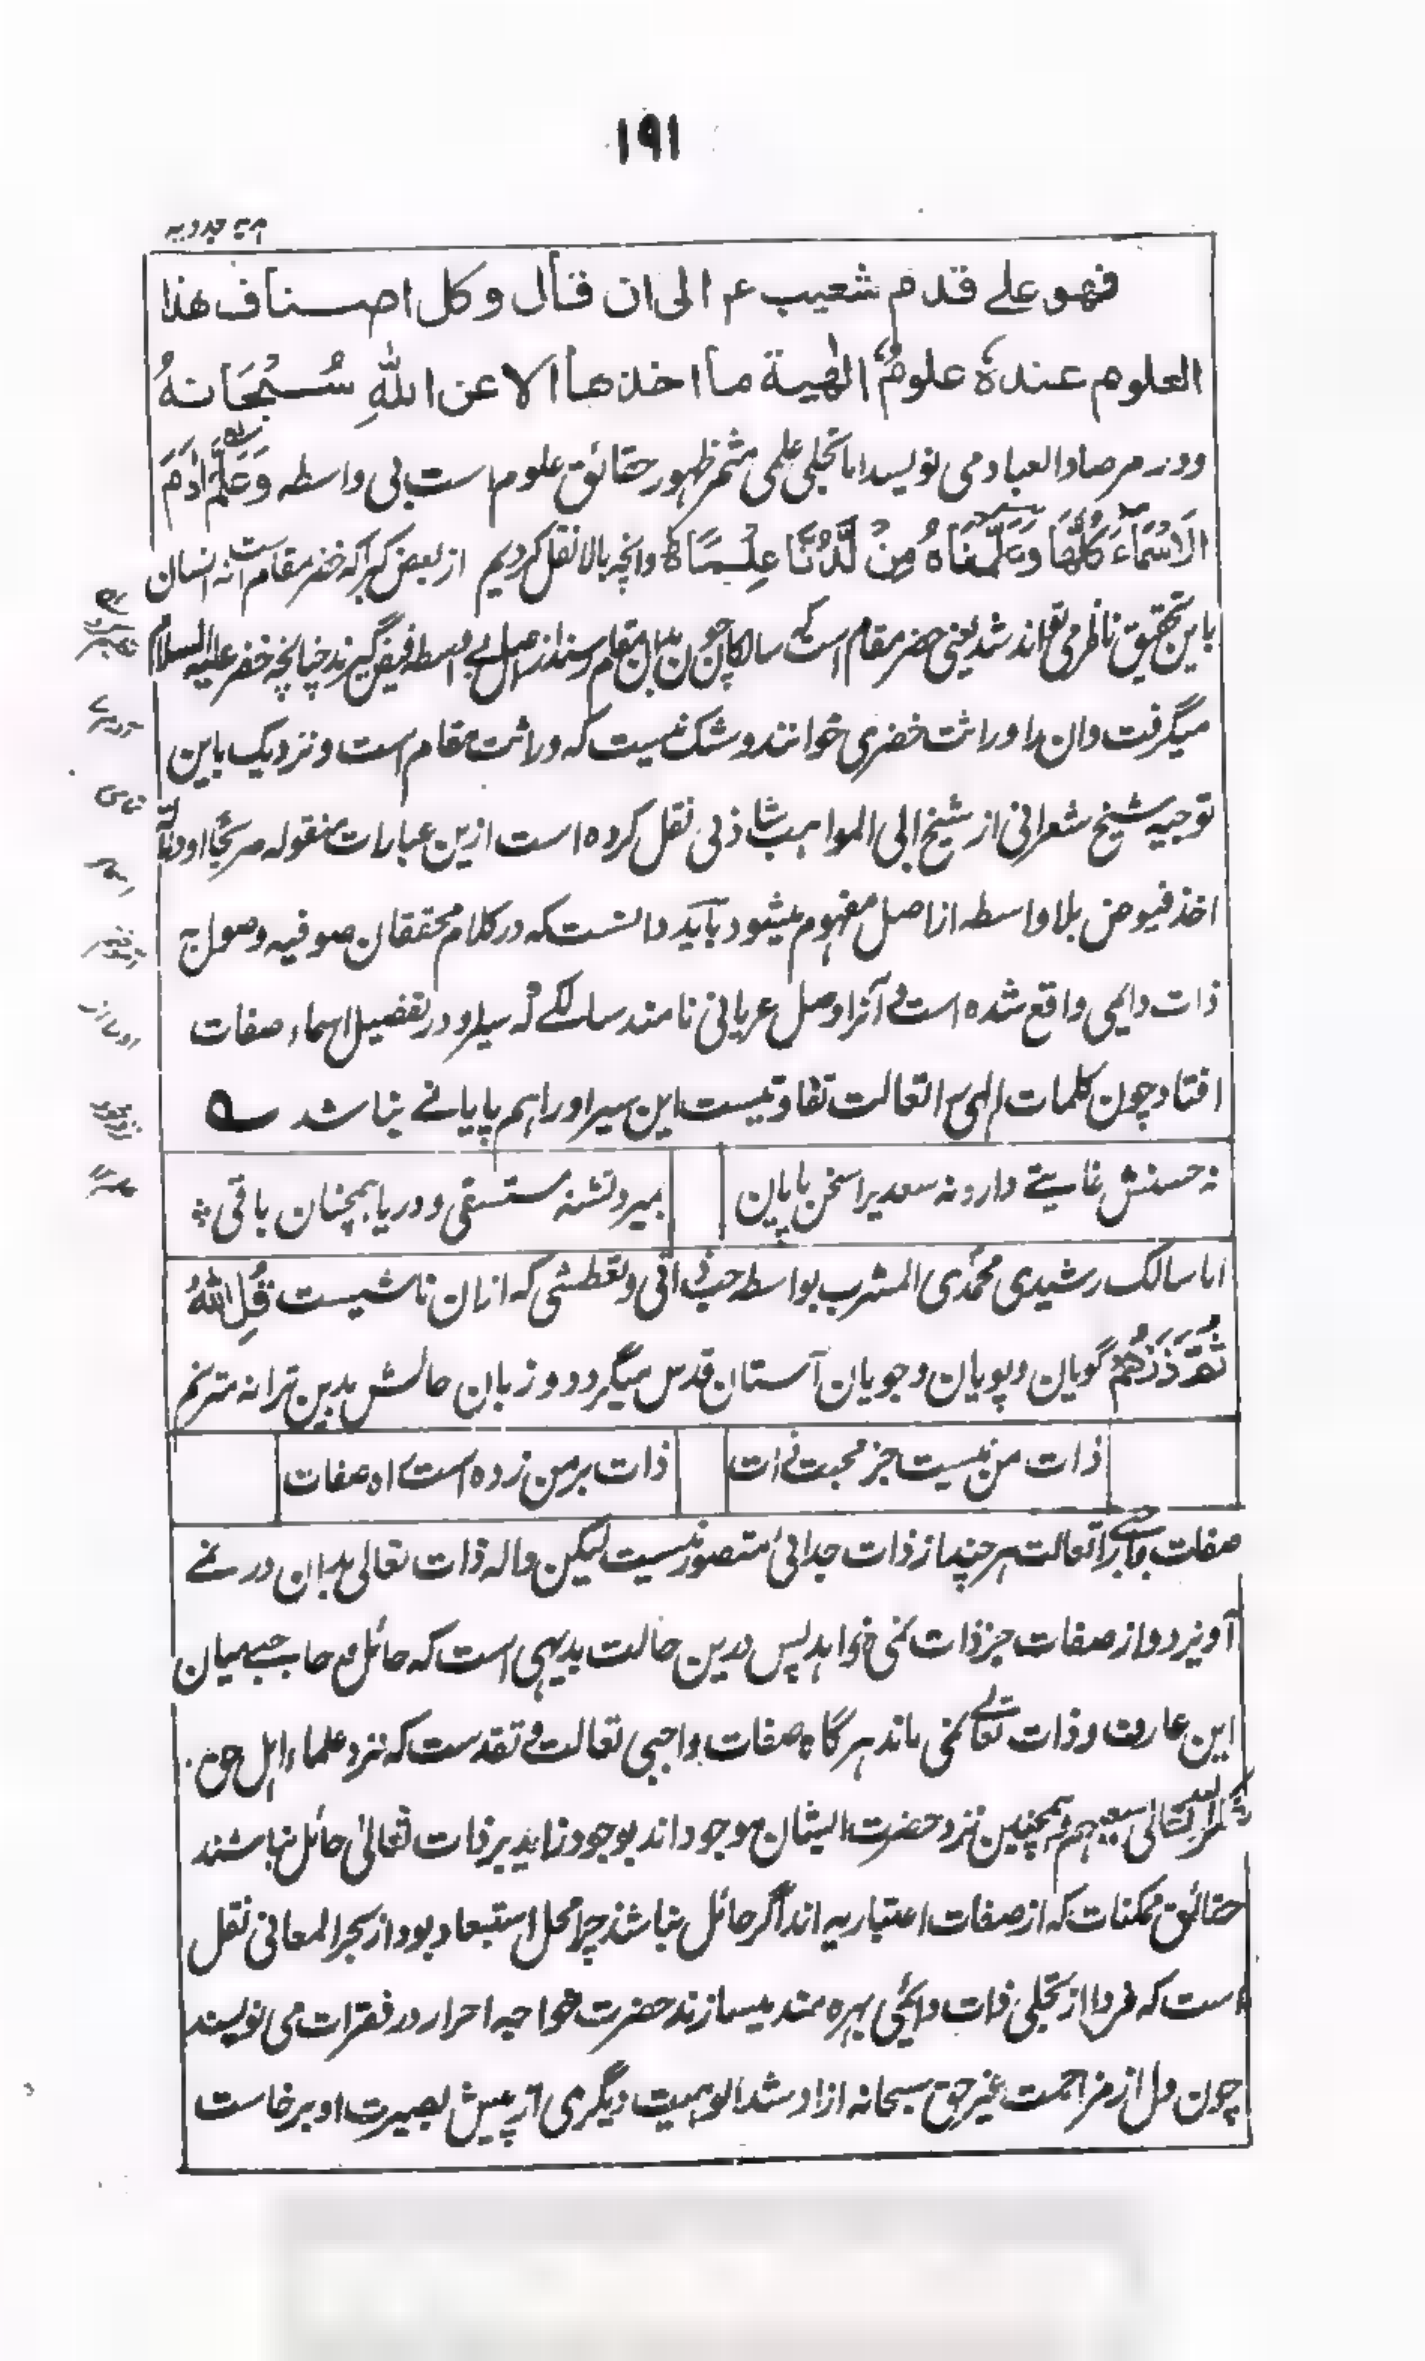 ۱۹۱
فهو علے قدم شعیب ء الی ان قال و کل اصناف هذا
العلوم عندهٗ علومٌ الٰهیة ما اخذها الا عن اللهِ سُبْحَانهُ
ودر مرصاد العباد می نویسد اما تجلی علمی مثمر ظهور حقائق علوم است بی واسطه وَعَلَّمَ اٰدَمَ
الْاَسْمَآءَ کُلَّهَا وَعَلَّمْنَاهُ مِنْ لَّدُنَّا عِلْمًا ط وانچه بالا نقل کردیم از بعض کبرا که خضر مقام است نه انسان
باین تحقیق ناظر می تواند شد یعنی خضر مقام است که سالکان چون باین مقام رسند از اصل بے واسطه فیض گیرند چنانچه خضر علیه السلام
میگرفت وان را وراثت خضری خوانند و شک نیست که وراثت مقام است و نزدیک باین
توجیه شیخ شعرانی از شیخ ابی المواهب شاذلی نقل کرده است ازین عبارات منقوله صریحًا
اخذ فیوض بلا واسطه از اصل مفهوم میشود باید دانست که در کلام محققان صوفیه وصول بـ
ذات دایمی واقع شده است و آنرا وصل عریانی نامند سالکے که سیر او در تفصیل اسماء صفات
افتاد چون کلمات الهی را تعالت نفاد نیست این سیر او را هم پایانے نباشد ؎
نه حسنش غایتے دارد نه سعدی را سخن پایان بمیرد تشنه مستسقی و دریا همچنان باقی
اما سالک رشیدی محمدی المشرب بواسطه حب ذاتی و تعطشی که ازان ناشیست قُلِ اللهُ
ثُمَّ ذَرْهُمْ گویان و پویان و جویان آستان قدس میگردد و زبان حالش بدین ترانه مترنم
ذات من نیست جز محبت ذات ذات بر من زده است راه صفات
صفات را تعالت هر چند از ذات جدائی متصور نیست لیکن واله ذات تعالی بدان در نمے
آویزد و از صفات جز ذات نمی خواهد پس درین حالت بدیهی است که حائل و حاجبے میان
این عارف و ذات تعالے نمی ماند هر گاه صفات واجبی تعالت و تقدست که نزد علماء اهل حق
شکر الله تعالی سعیهم و همچنین نزد حضرت ایشان موجود اند بوجود زاید بر ذات تعالیٰ حائل نباشند
حقائق ممکنات که از صفات اعتباریه اند اگر حائل نباشند چرا محل استبعاد بود از بحر المعانی نقل
است که فرد را از تجلی ذات دائمی بهره مند میسازند حضرت خواجه احرار در فقرات می نویسند
چون دل از مزاحمت غیر حق سبحانه ازاد شد الوهیت دیگری از پیش بصیرت او برخاست